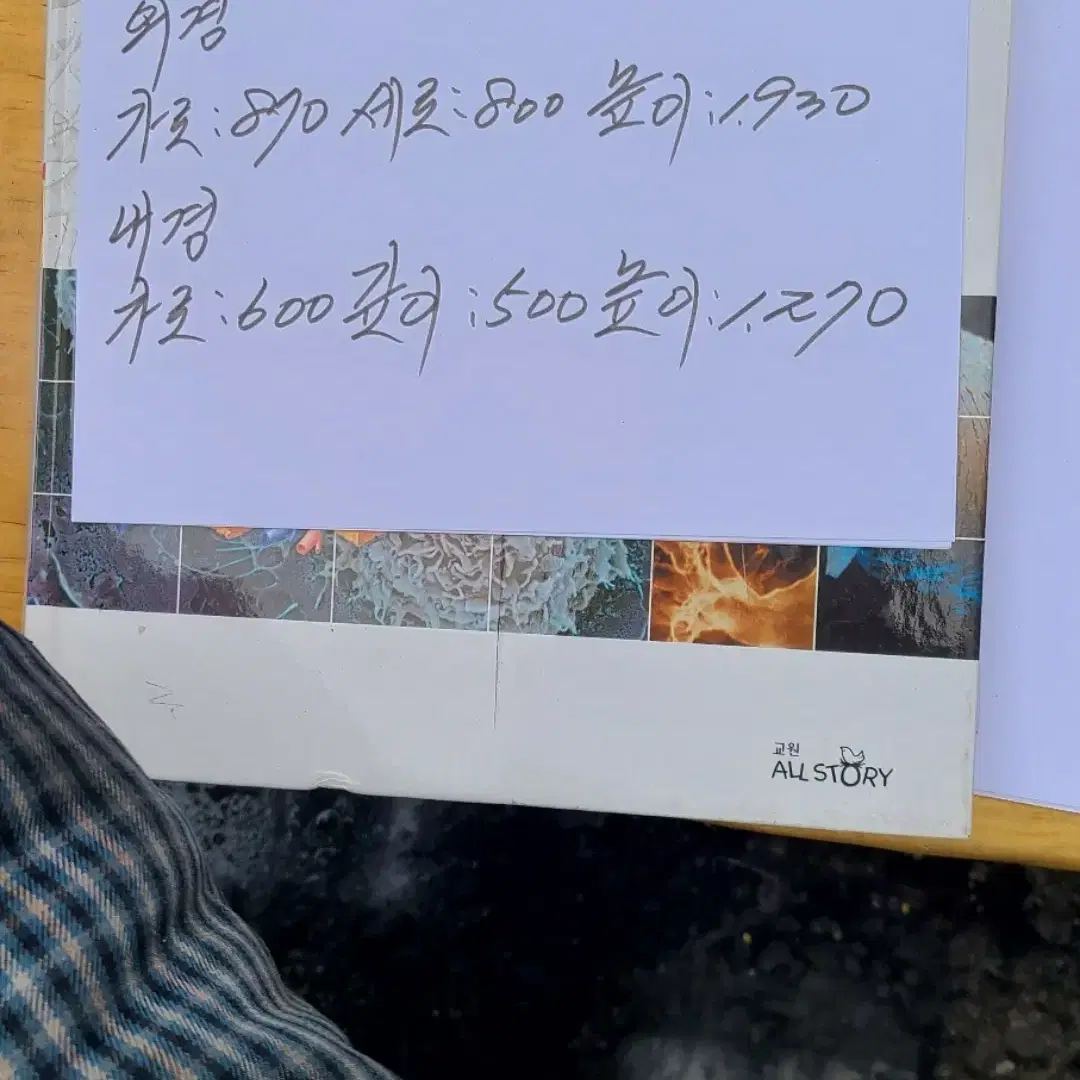 외경
가로:870 세로:800 높이:1.930
내경
가로:600 깊이:500 높이:1.270
교원
ALL STORY